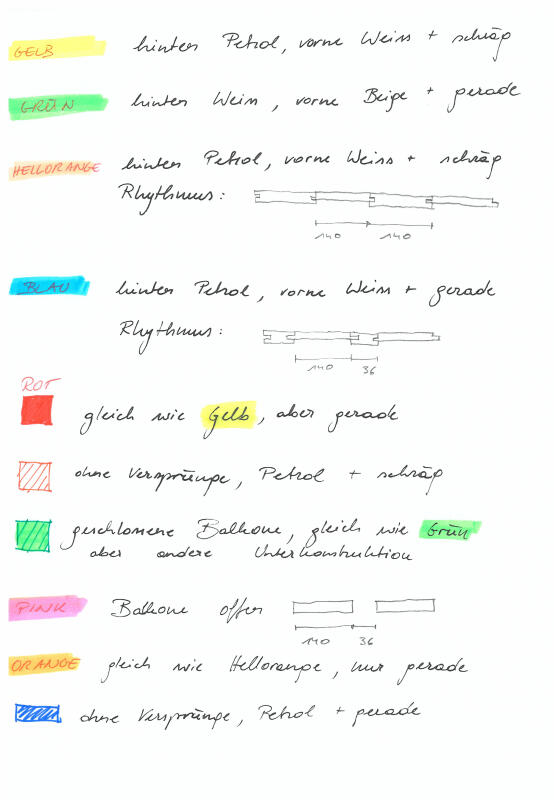 GELB hinten Petrol, vorne Weiss + schräg
GRÜN hinten Weiss, vorne Beige + gerade
HELLORANGE hinten Petrol, vorne Weiss + schräg
Rhythmus:
140 140
BLAU hinten Petrol, vorne Weiss + gerade
Rhythmus:
140 36
ROT
gleich wie Gelb, aber gerade
ohne Versprünge, Petrol + schräg
geschlossene Balkone, gleich wie Grün
aber andere Unterkonstruktion
PINK Balkone offen
140 36
ORANGE gleich wie Hellorange, nur gerade
ohne Versprünge, Petrol + gerade